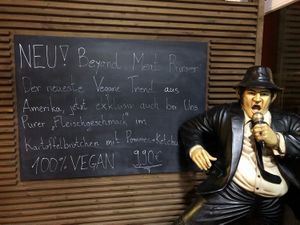 NEU! Beyond Meat Burger
Der neueste Vegane Trend aus
Amerika, jetzt exklusiv auch bei Uns
Purer „Fleischgeschmack" im
Kartoffelbrötchen mit Pommes+Ketchup
100% VEGAN 990€